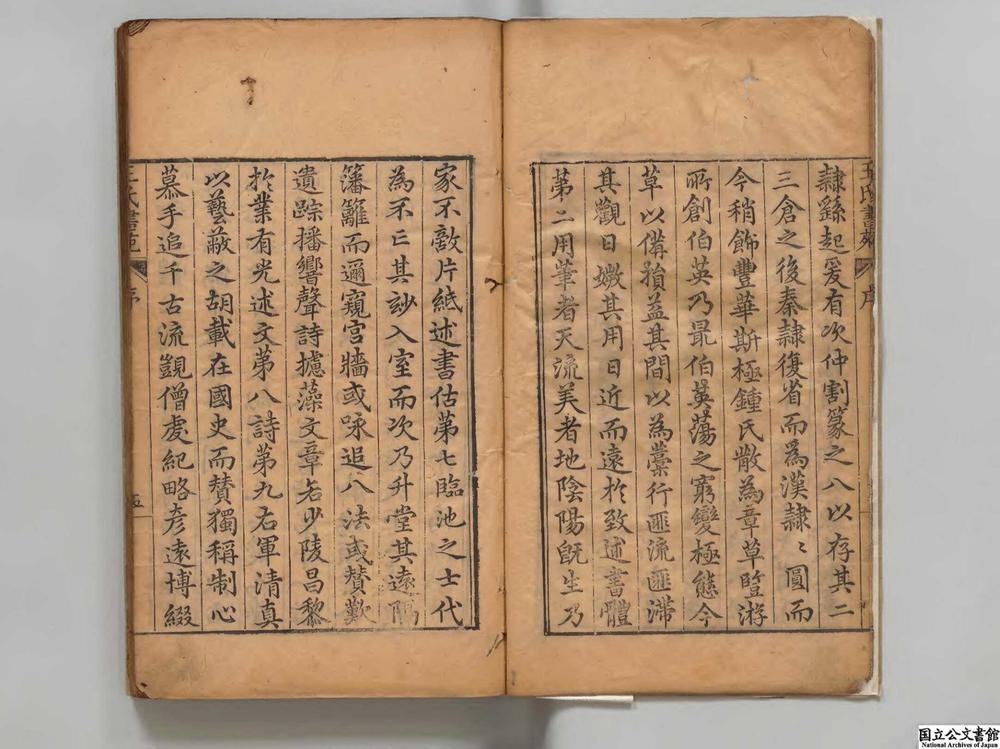 隸繇起爰有次仲割篆之八以存其二
三倉之後秦隸復省而爲漢隸〻圓而
今稍飾豐華斯極鍾氏散為章草暨游
所創伯英乃最伯英蕩之窮變極態今
草以備猶益其間以為藁行匪流匪滯
其觀日媺其用日近而遠於致述書體
第二用筆者天流美者地陰陽旣生乃
王氏書苑
序
家不敵片紙述書估第七臨池之士代
為不亡其妙入室而次乃升堂其遠隔
籓籬而邇窺宮牆或咏追八法或賛歎
遺踪播響聲詩攄藻文章若少陵昌黎
扵業有光述文第八詩第九右軍清真
以藝蔽之胡載在國史而賛獨稱制心
慕手追千古流覬僧虔紀略彥遠博綴
王氏書苑
序
五
国立公文書館
National Archives of Japan